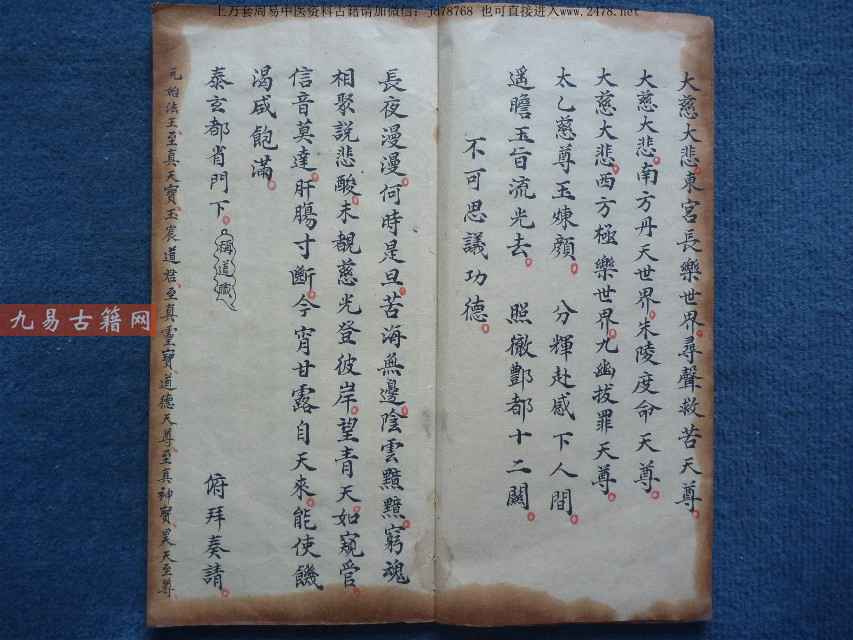 上万套周易中医资料古籍请加微信:jd78768 也可直接进入www.2478.net
大慈大悲東宮長樂世界尋聲救苦天尊
大慈大悲南方丹天世界朱陵度命天尊
大慈大悲西方極樂世界九幽拔罪天尊
太乙慈尊玉煉顔 分輝赴感下人間
遥瞻玉旨流光去 照徹酆都十二闗
不可思議功德
長夜漫漫何時是旦苦海無邊陰雲黯黯窮魂
相聚説悲酸未覩慈光登彼岸望青天如窺管
信音莫達肝膓寸斷今宵甘露自天來能使饑
渴咸飽滿
泰玄都省門下 稱道職 俯拜奏請
元始法王至真天寶玉宸道君至真靈寶道德天尊至真神寶昊天至尊
九易古籍网